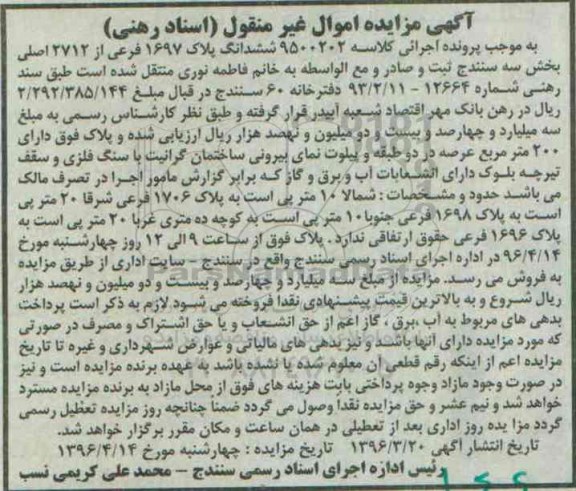 آگهی مزایده اموال غیر منقول (اسناد رهنی)
به موجب پرونده اجرائی کلاسه ۹۵۰۰۲۰۲ ششدانگ پلاک ۱۶۹۷ فرعی از ۲۷۱۲ اصلی
بخش سه سنندج ثبت و صادر و مع الواسطه به خانم فاطمه نوری منتقل شده است طبق سند
رهنی شماره ۱۲۶۶۴ - ۹۳/۲/۱۱ دفترخانه ۶۰ سنندج در قبال مبلغ ۲/۲۹۲/۳۸۵/۱۴۴
ریال در رهن بانک مهر اقتصاد شعبه آبیدر قرار گرفته و طبق نظر کارشناس رسمی به مبلغ
سه میلیارد و چهارصد و بیست و دو میلیون و نهصد هزار ریال ارزیابی شده و پلاک فوق دارای
۲۰۰ متر مربع عرصه در دو طبقه و پیلوت نمای بیرونی ساختمان گرانیت با سنگ فلزی و سقف
تیرچه بلوک دارای انشعابات آب و برق و گاز که برابر گزارش مامور اجرا در تصرف مالک
می باشد حدود و مشخصات : شمالا ۱۰ متر پی است به پلاک ۱۷۰۶ فرعی شرقا ۲۰ متر پی
است به پلاک ۱۶۹۸ فرعی جنوبا ۱۰ متر پی است به کوچه ده متری غربا ۲۰ متر پی است به
پلاک ۱۶۹۶ فرعی حقوق ارتفاقی ندارد . پلاک فوق از ساعت ۹ الی ۱۲ روز چهارشنبه مورخ
۹۶/۴/۱۴ در اداره اجرای اسناد رسمی سنندج واقع در سنندج - سایت اداری از طریق مزایده
به فروش می رسد. مزایده از مبلغ سه میلیارد و چهارصد و بیست و دو میلیون و نهصد هزار
ریال شروع و به بالاترین قیمت پیشنهادی نقدا فروخته می شود. لازم به ذکر است پرداخت
بدهی های مربوط به آب ،برق ، گاز اعم از حق انشعاب و یا حق اشتراک و مصرف در صورتی
که مورد مزایده دارای آنها باشد و نیز بدهی های مالیاتی و عوارض شهرداری و غیره تا تاریخ
مزایده اعم از اینکه رقم قطعی آن معلوم شده یا نشده باشد به عهده برنده مزایده است و نیز
در صورت وجود مازاد وجوه پرداختی بابت هزینه های فوق از محل مازاد به برنده مزایده مسترد
خواهد شد و نیم عشر و حق مزایده نقدا وصول می گردد ضمنا چنانچه روز مزایده تعطیل رسمی
گردد مزا یده روز اداری بعد از تعطیلی در همان ساعت و مکان مقرر برگزار خواهد شد.
تاریخ انتشار آگهی ۱۳۹۶/۳/۲۰ تاریخ مزایده : چهارشنبه مورخ ۱۳۹۶/۴/۱۴
رئیس اداره اجرای اسناد رسمی سنندج - محمد علی کریمی نسب